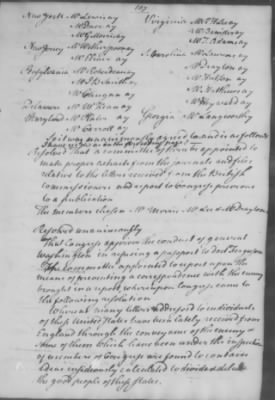 107
New York Mr Lewis ay Virginia Mr R H Lee ay
Mr Duer ay Mr M Smith ay
Mr T Adams ay
New Jersey Mr Witherspoon ay S. Carolina Mr Laurens ay
Mr Elmer ay Mr Drayton ay
Pensylvania Mr Roberdeau ay Mr Hutson ay
Mr J B Smith ay Mr Mathews ay
Mr Clingan ay Mr Heyward ay
Delaware Mr McKean ay Georgia Mr Langworthy
Maryland Mr Plater ay
Mr Carroll ay
So it was unanimously agreed to and is as follows
Resolved That a committee of three be appointed to
make proper extracts from the journals and files
relative to the letters received from the British
commissioners and report to Congress previous
to a publication
The members chosen Mr Morris Mr Lee & Mr Drayton
Resolved unanimously
That Congress approve the conduct of general
Washington in refusing a passport to Doct Ferguson
The committee appointed to report upon the
means of preventing a correspondence with the enemy
brought in a report, whereupon Congress came to
the following resolution
Whereas many letters addressed to individuals
of these United States have been lately received from
England through the conveyance of the enemy &
some of them which have been under the inspection
of members of Congress are found to contain
ideas insidiously calculated to divide & delude
the good people of these States.